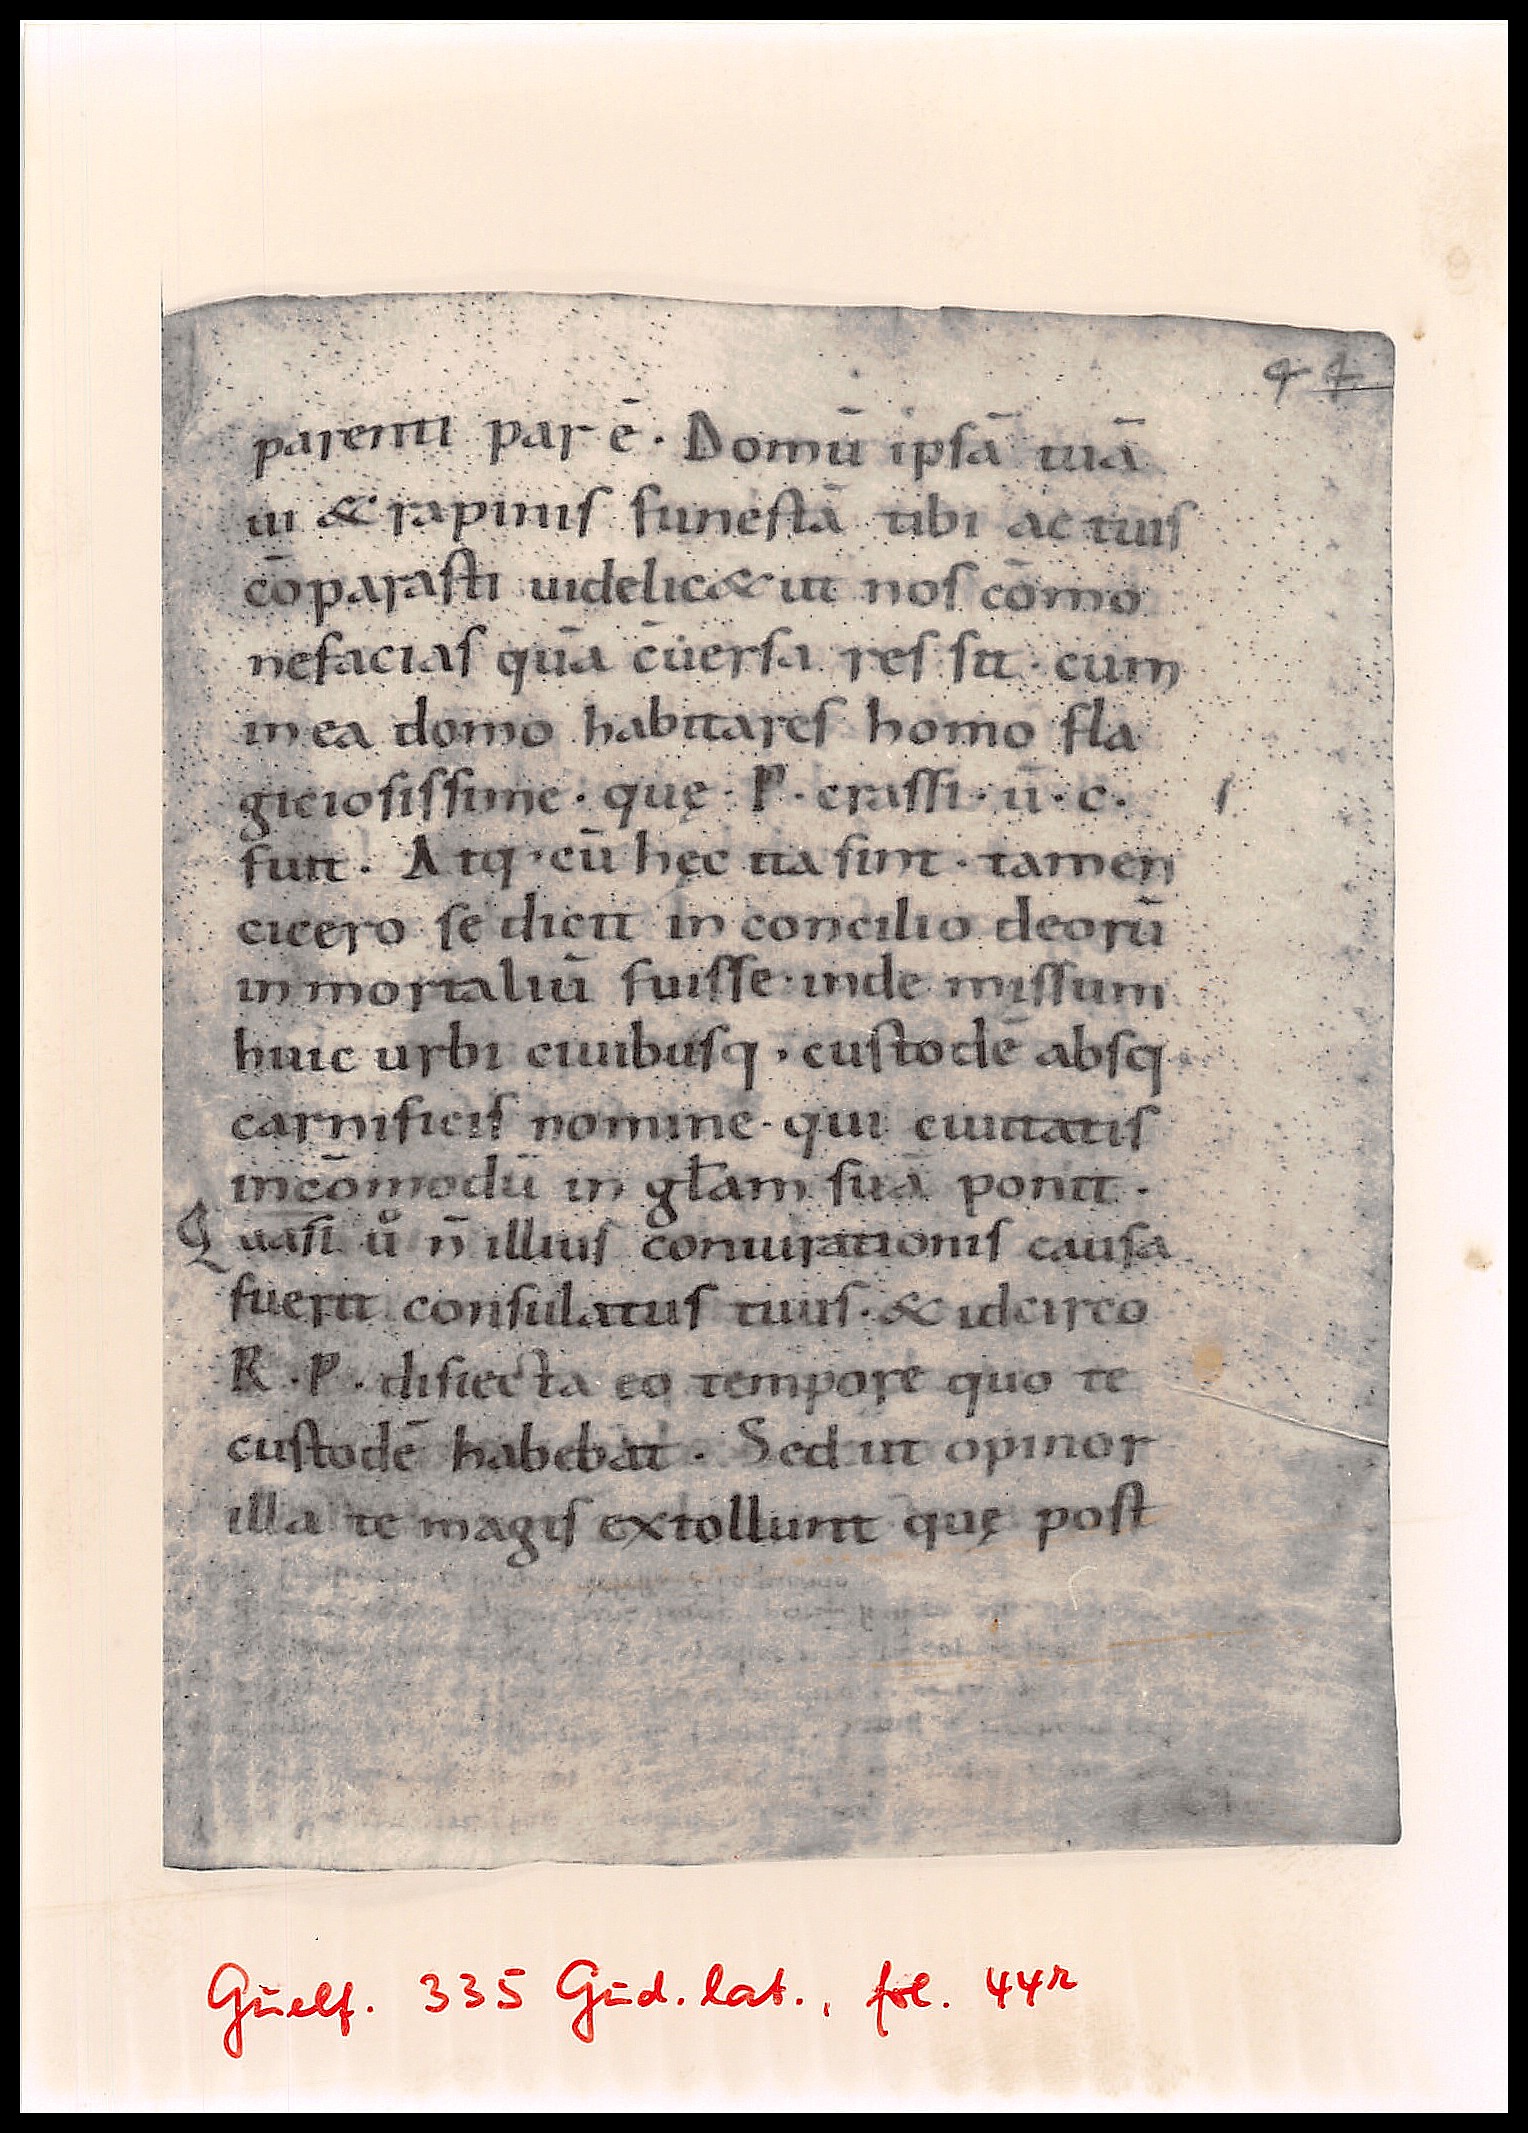 44
parenti par ē. Domū ipsā tuā
ui & rapinis funestā tibi ac tuis
cōparasti uidelic& ut nos cōmo
nefacias quā cūersa res sit · cum
in ea domo habitares homo fla
giciosissime · quę · P · crassi · ū · c ·
fuit . Atq · cū hęc ita sint · tamen
cicero se dicit in concilio deorū
inmortaliū fuisse · inde missum
huic urbi ciuibusq · custodē absq
carnificis nomine · qui ciuitatis
incōmodū in głam suā ponit .
Quasi ů n̄ illius coniurationis causa
fuerit consulatus tuus · & idcirco
R · P · disiecta eo tempore quo te
custodē habebat . Sed ut opinor
illa te magis extollunt quę post
Guelf. 335 Gud. lat., fol. 44r